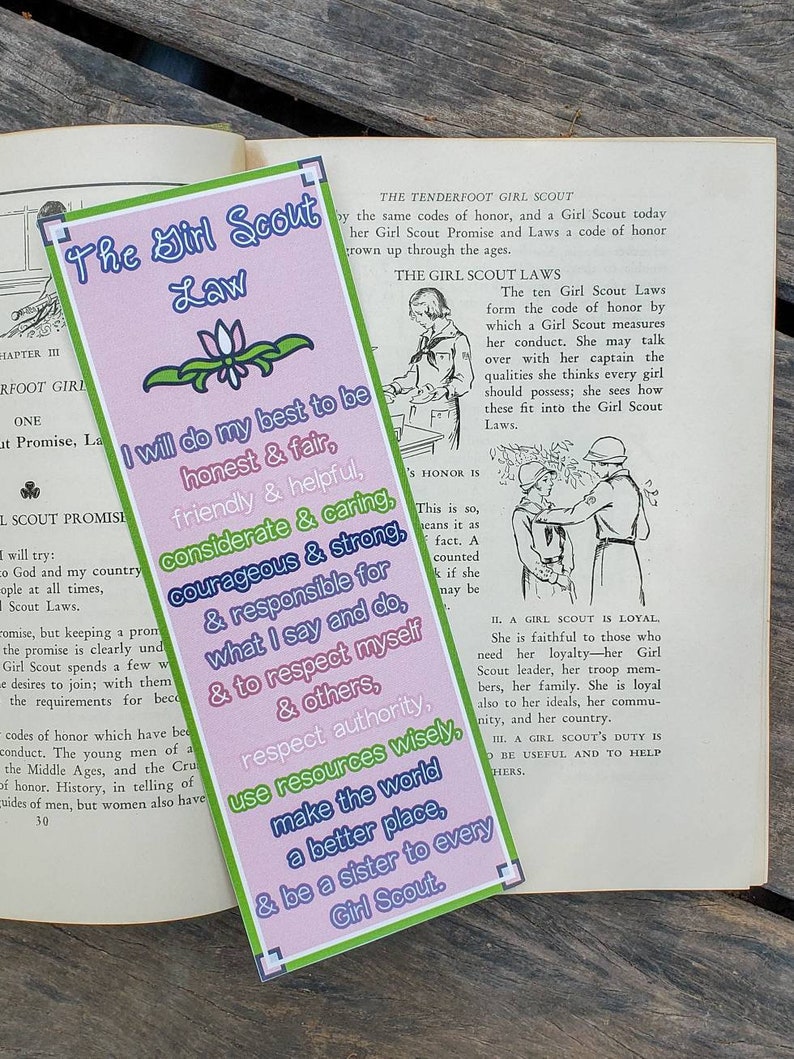 The Girl Scout
Law
I will do my best to be
honest & fair,
friendly & helpful,
considerate & caring,
courageous & strong,
& responsible for
what I say and do,
& to respect myself
& others,
respect authority,
use resources wisely,
make the world
a better place,
& be a sister to every
Girl Scout.
CHAPTER III
ONE
SCOUT PROMISE
I will try:
to God and my country
people at all times,
Scout Laws.
promise, but keeping a
the promise is clearly
Girl Scout spends a few
she desires to join; with them
the requirements for
codes of honor which have
conduct. The young men of
the Middle Ages, and the
of honor. History, in telling of
guides of men, but women also have
30
THE TENDERFOOT GIRL SCOUT
by the same codes of honor, and a Girl Scout today
her Girl Scout Promise and Laws a code of honor
grown up through the ages.
THE GIRL SCOUT LAWS
The ten Girl Scout Laws
form the code of honor by
which a Girl Scout measures
her conduct. She may talk
over with her captain the
qualities she thinks every girl
should possess; she sees how
these fit into the Girl Scout
Laws.
HONOR IS
This is so,
means it as
fact. A
counted
if she
may be
II. A GIRL SCOUT IS LOYAL.
She is faithful to those who
need her loyalty—her Girl
Scout leader, her troop mem-
bers, her family. She is loyal
also to her ideals, her commu-
nity, and her country.
III. A GIRL SCOUT'S DUTY IS
TO BE USEFUL AND TO HELP
OTHERS.